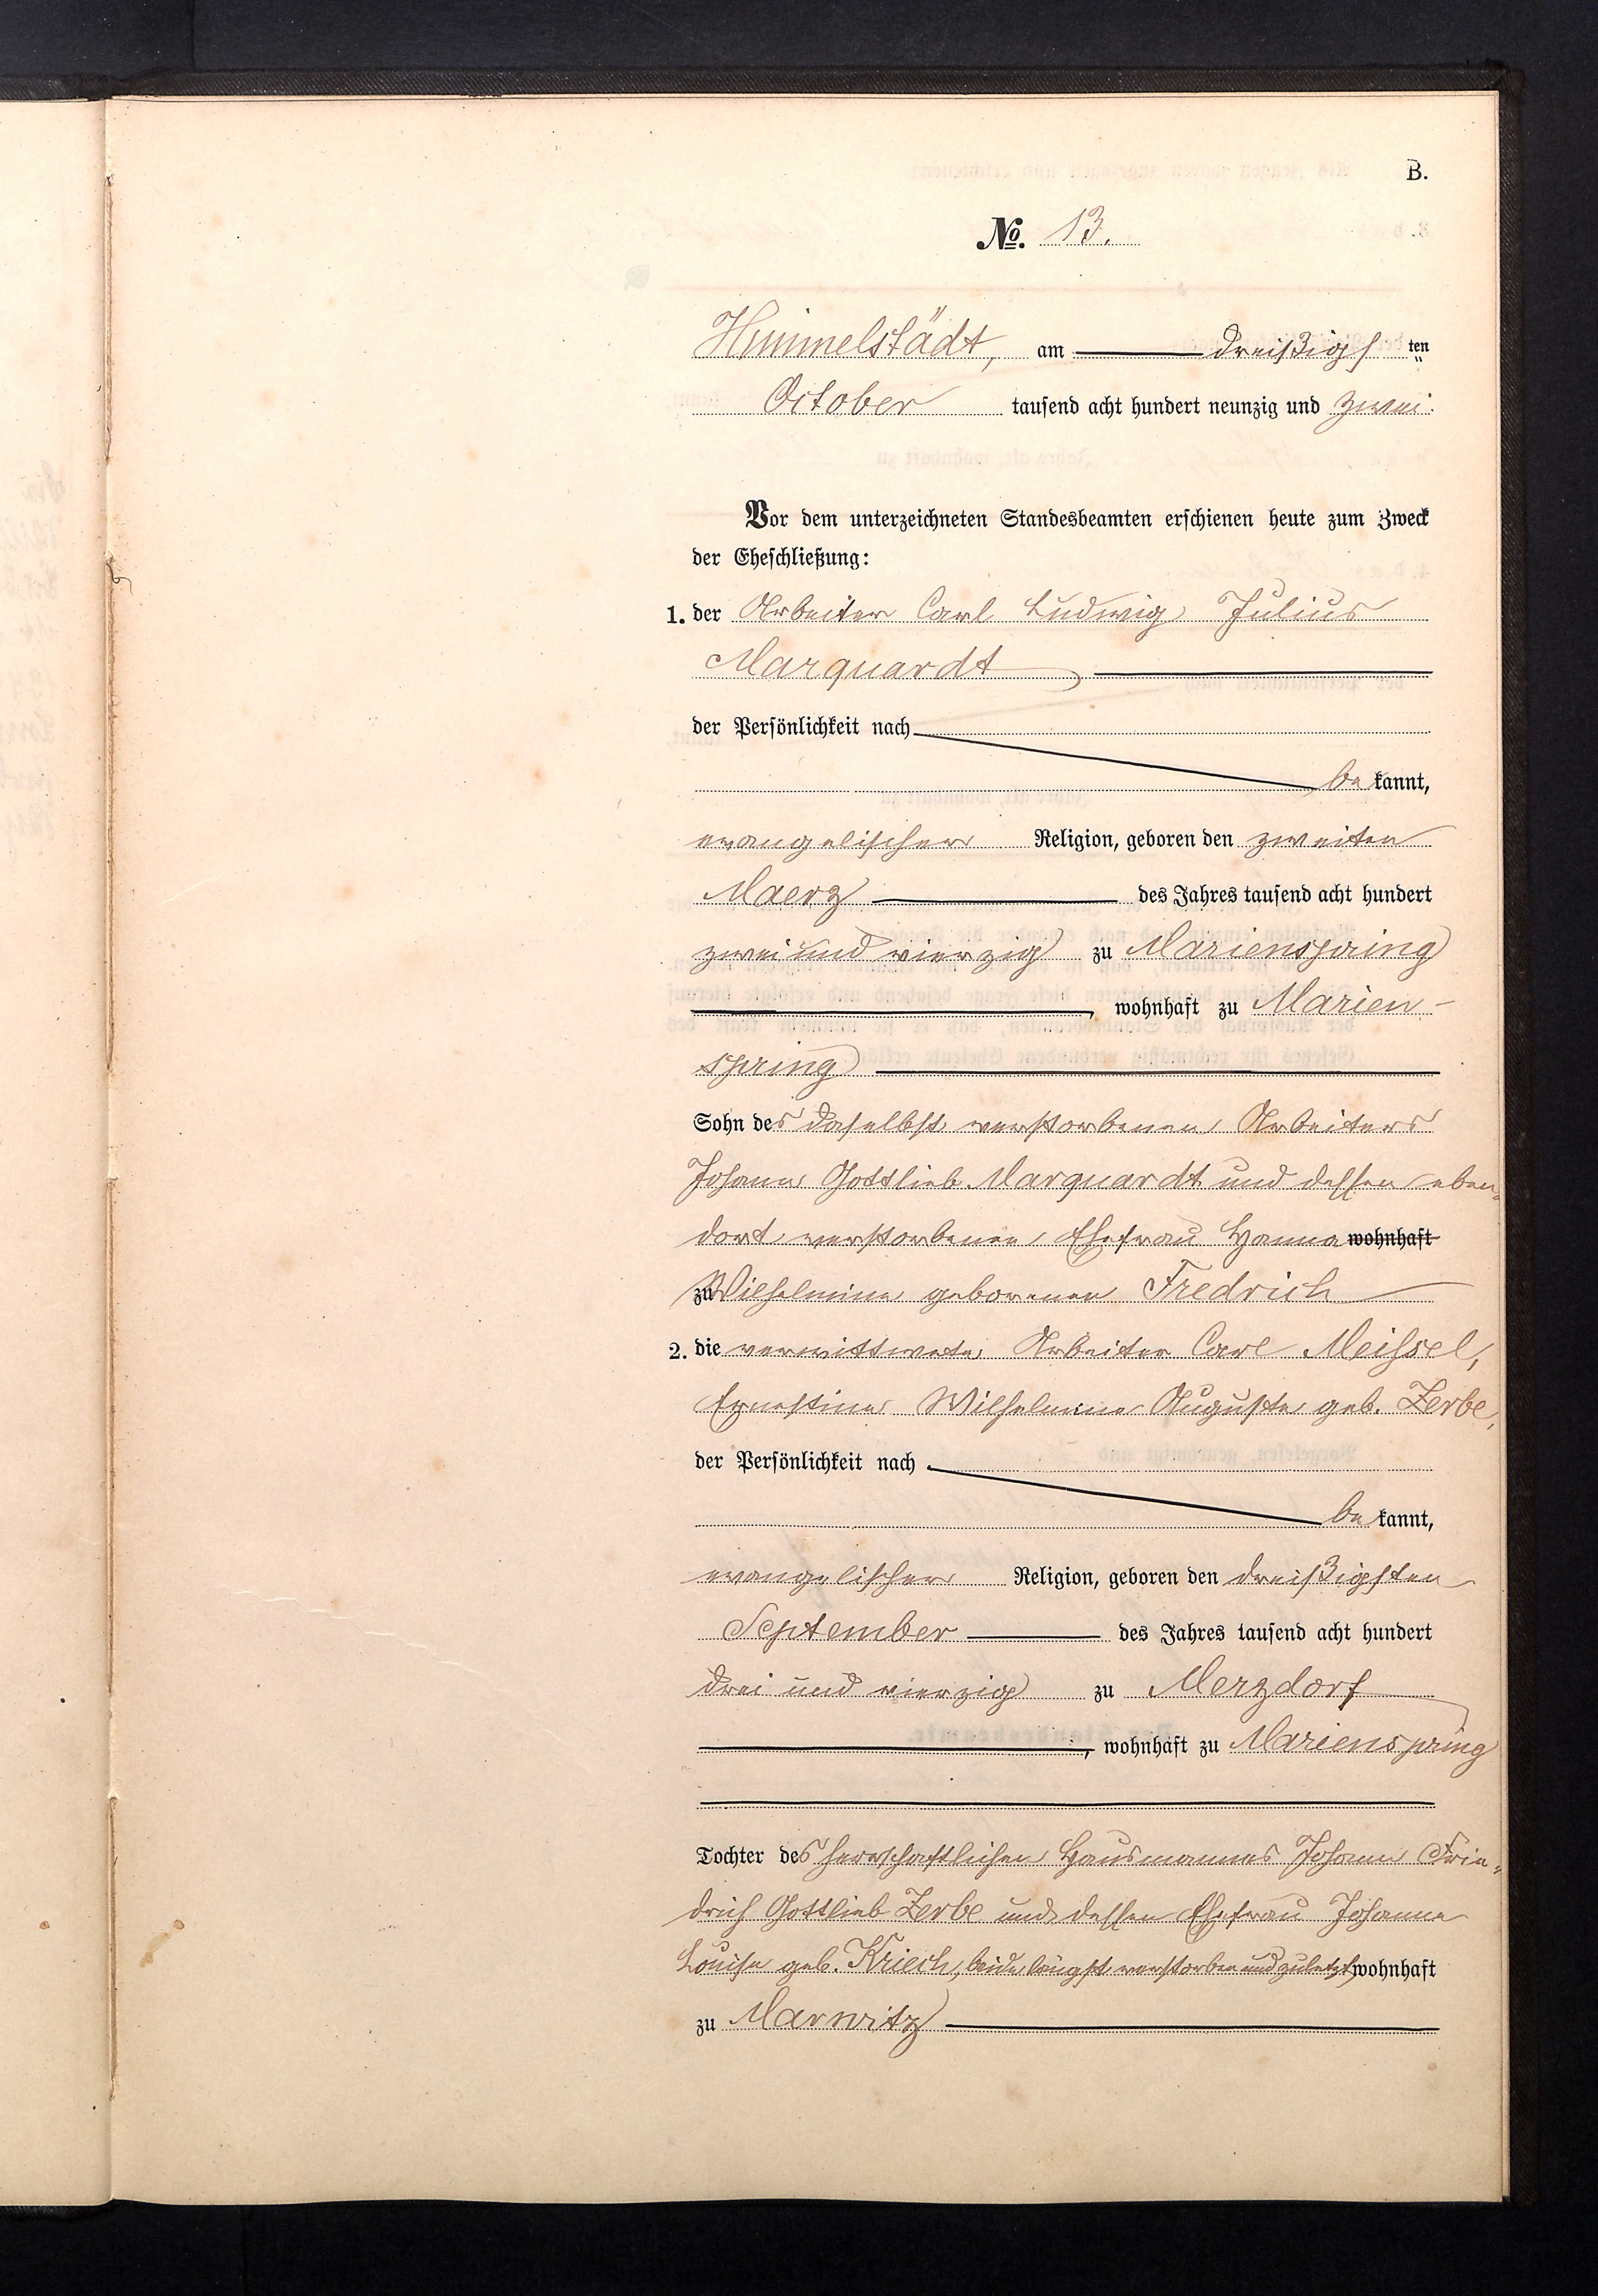 B.
No. 13.
Himmelstädt, am dreißigsten
October tausend acht hundert neunzig und zwei.
Vor dem unterzeichneten Standesbeamten erschienen heute zum Zweck
der Eheschließung:
1. der Arbeiter Carl Ludwig Julius
Marquardt
der Persönlichkeit nach
be kannt,
evangelischer Religion, geboren den zweiten
Maerz des Jahres tausend acht hundert
zwei und vierzig zu Marienspring
, wohnhaft zu Marien-
spring
Sohn des daselbst verstorbenen Arbeiters
Johann Gottlieb Marquardt und dessen eben-
dort verstorbenen Ehefrau Hanna wohnhaft
zu Wilhelmine geborenen Fredrich
2. die verwittwete Arbeiter Carl Meissel,
Ernestine Wilhelmine Auguste geb. Zerbe,
der Persönlichkeit nach
be kannt,
evangelischer Religion, geboren den dreißigsten
September des Jahres tausend acht hundert
drei und vierzig zu Merzdorf
, wohnhaft zu Marienspring
Tochter des herrschaftlichen Hausmannes Johann Frie-
drich Gottlieb Zerbe und dessen Ehefrau Johanne
Louise geb. Kriech, beide längst verstorben und zuletzt wohnhaft
zu Marwitz